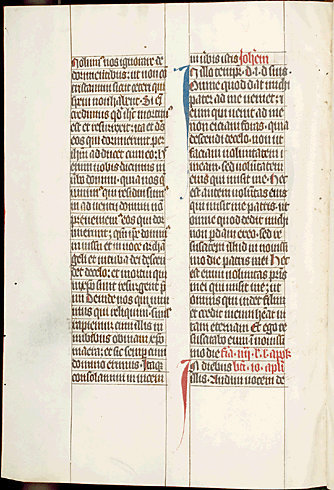 Nolumus vos ignorare de
dormientibus: ut non con
tristamini sicut ceteri qui
spem non habent. Si eni
credimus qd ihc mortuus
est et resurrexit: ita et deus
eos qui dormierunt per
ihm adducet cum eo: hoc
enim vobis dicimus in
vbo domini. quia nos qui
vivimus qui residui sumus
in adventu domini non
preveniemus eos qui dor
mierunt: qm ipse dominus
in iussu et in voce archa
geli et in tuba dei descen
det de celo: et mortui qui
in xpo sunt resurgent pri
mi Deinde nos qui vivi
mus qui relinquimur simul
rapiemur cum illis in
nubibus obviam xpo
in aera: et sic semp cum
domino erimus. Itaque
consolamini in invicem
in vbis istis Johem
In illo temp. d. i. d. suis.
Omne quod dat michi
pater. ad me veniet: et
eum qui venit ad me
non eiciam foras. quia
descendi de celo. non ut
faciam voluntatem
meam. sed voluntatem
eius qui misit me. Hec
est autem voluntas eius
qui misit me patris. ut
omne quod dedit michi
non pdam ex eo. sed re
suscitem illud in novissi
mo die Hec
est enim voluntas pris
mei qui misit me: ut
omnis qui videt filium
et credit in eum habeat vi
tam eternam. Et ego re
suscitabo eum in novissi
mo die
In diebus
illis. Audivi vocem de